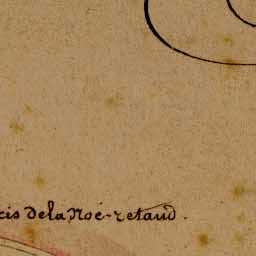 cis de la Noé-retaud.